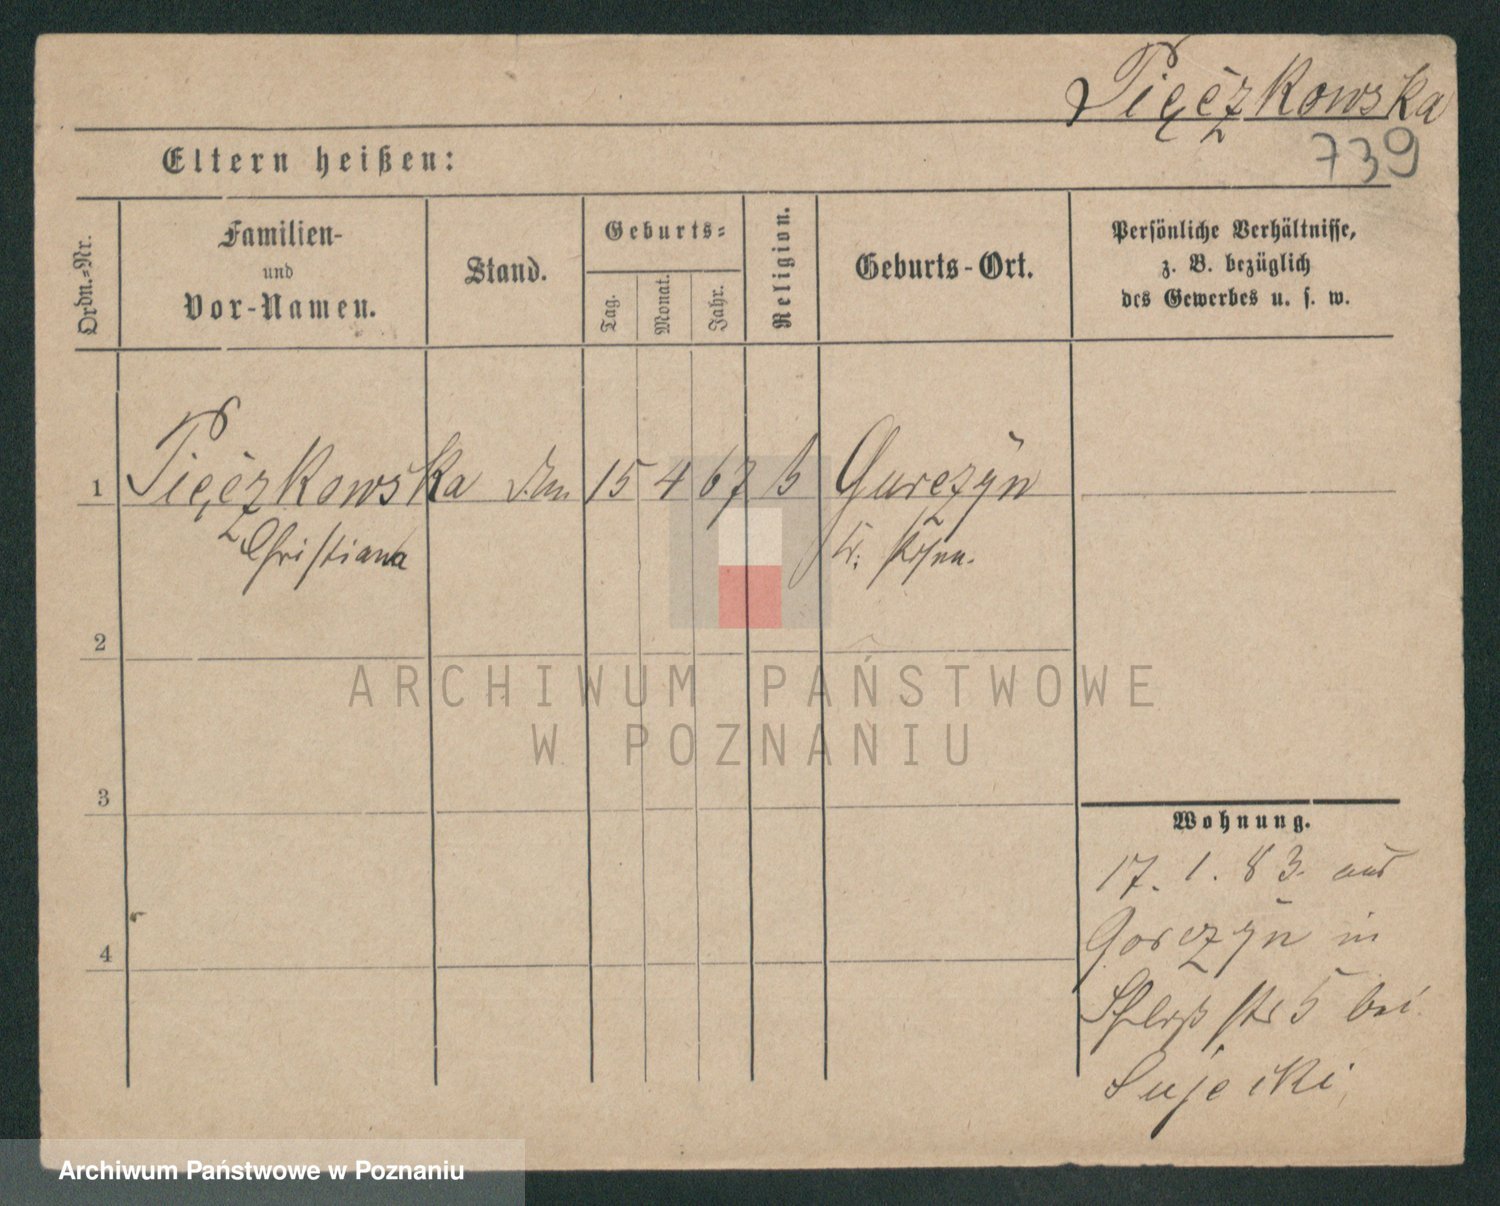 Pięczkowska
739
Eltern heißen:
Ordn.-Nr.
Familien-
und
Vor-Namen.
Stand.
Geburts-
Tag.
Monat.
Jahr.
Religion.
Geburts-Ort.
Persönliche Verhältnisse,
z. B. bezüglich
des Gewerbes u. s. w.
1 Pięczkowska 15 4 67 Gurczyn
Christiana Kr. Posen.
2
3
4
Wohnung.
17. 1. 83. aus
Gorczyn in
Schloß str 5 bei
Sujecki
ARCHIWUM PAŃSTWOWE
W POZNANIU
Archiwum Państwowe w Poznaniu